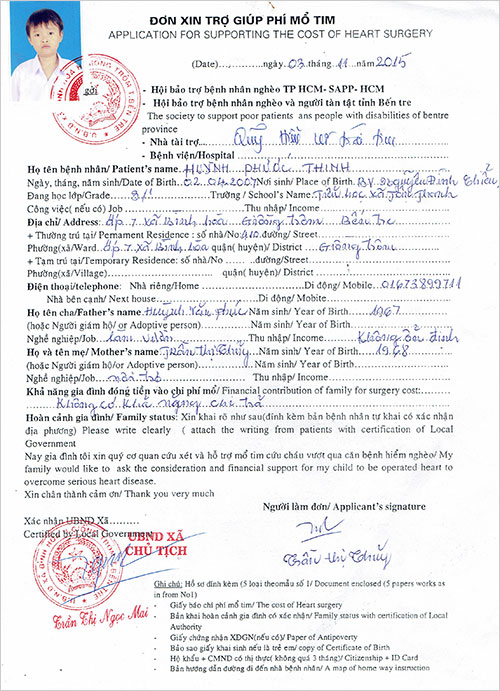 ĐƠN XIN TRỢ GIÚP PHÍ MỔ TIM
APPLICATION FOR SUPPORTING THE COST OF HEART SURGERY
(Date)......ngày.. 03 .tháng.. 11 ..năm 2015
gởi - Hội bảo trợ bệnh nhân nghèo TP HCM- SAPP- HCM
- Hội bảo trợ bệnh nhân nghèo và người tàn tật tỉnh Bến tre
The society to support poor patients ans people with disabilities of bentre
province
- Nhà tài trợ.... Quỹ
- Bệnh viện/Hospital
Họ tên bệnh nhân/ Patient's name. HUỲNH PHƯỚC THỊNH
Ngày, tháng, năm sinh/Date of Birth. 02.04.2007 Nơi sinh/ Place of Birth. BV Nguyễn Đình Chiểu
Đang học lớp/Grade... 3/1 Trường / School's Name. Tiểu học xã
Công việc( nếu có) Job ........ Thu nhập/ Income........
Địa chỉ/ Address: Ấp 7 xã Bình hòa Giồng trôm Bến tre
+ Thường trú tại/ Permament Residence : số nhà/No 410 .đường/ Street........
Phường(xã/Ward.. Ấp 7 xã Bình hòa quận( huyện)/ District .. Giồng trôm
+ Tạm trú tại/Temporary Residence: số nhà/No ........đường/Street........
Phường(xã/Village)........ quận( huyện)/ District........
Điện thoại/telephone: Nhà riêng/Home ........Di động/ Mobile.. 01673899711
Nhà bên cạnh/ Next house........Di động/ Mobite........
Họ tên cha/Father's name Huỳnh Văn Phúc Năm sinh/ Year of Birth.. 1967
(hoặc Người giám hộ/ or Adoptive person)........Năm sinh/ Year of Birth........
Nghề nghiệp/Job.. làm vườn Thu nhập/ Income.. Không ổn định
Họ và tên mẹ/ Mother's name Trần Thị Thủy Năm sinh/ Year of Birth.. 1968
(hoặc Người giám hộ/ or Adoptive person)........Năm sinh/ Year of Birth........
Nghề nghiệp/Job.. nội trợ Thu nhập/ Income........
Khả năng gia đình đóng tiền vào chi phí mổ/ Financial contribution of family for surgery cost:
Không có khả năng chi trả
Hoàn cảnh gia đình/ Family status: Xin khai rõ như sau(đính kèm bản bệnh nhân tự khai có xác nhận
địa phương) Please write clearly ( attach the writing from patients with certification of Local
Government
Nay gia đình tôi xin quý cơ quan cứu xét và hỗ trợ mổ tim cứu cháu vượt qua căn bệnh hiểm nghèo/ My
family would like to ask the consideration and financial support for my child to be operated heart to
overcome serious heart disease.
Xin chân thành cảm ơn/ Thank you very much
Người làm đơn/ Applicant's signature
Xác nhận UBND Xã.........
Certified by Local Government
UBND XÃ
CHỦ TỊCH
Trần Thị Thủy
Trần Thị Ngọc Mai
Ghi chú: Hồ sơ đính kèm (5 loại theo mẫu số 1/ Document enclosed (5 papers works as
in from No1)
- Giấy báo chi phí mổ tim/ The cost of Heart surgery
- Bản khai hoàn cảnh gia đình có xác nhận/ Family status with certification of Local
Authority
- Giấy chứng nhận XĐGN(nếu có)/ Paper of Antipoverty
- Bảo sao giấy khai sinh nếu là trẻ em/ copy of Certificate of Birth
- Hộ khẩu + CMND có thị thực( không quá 3 tháng)/ Citizenship + ID Card
- Bản hướng dẫn đường đi đến nhà bệnh nhân/ A map of home way instruction